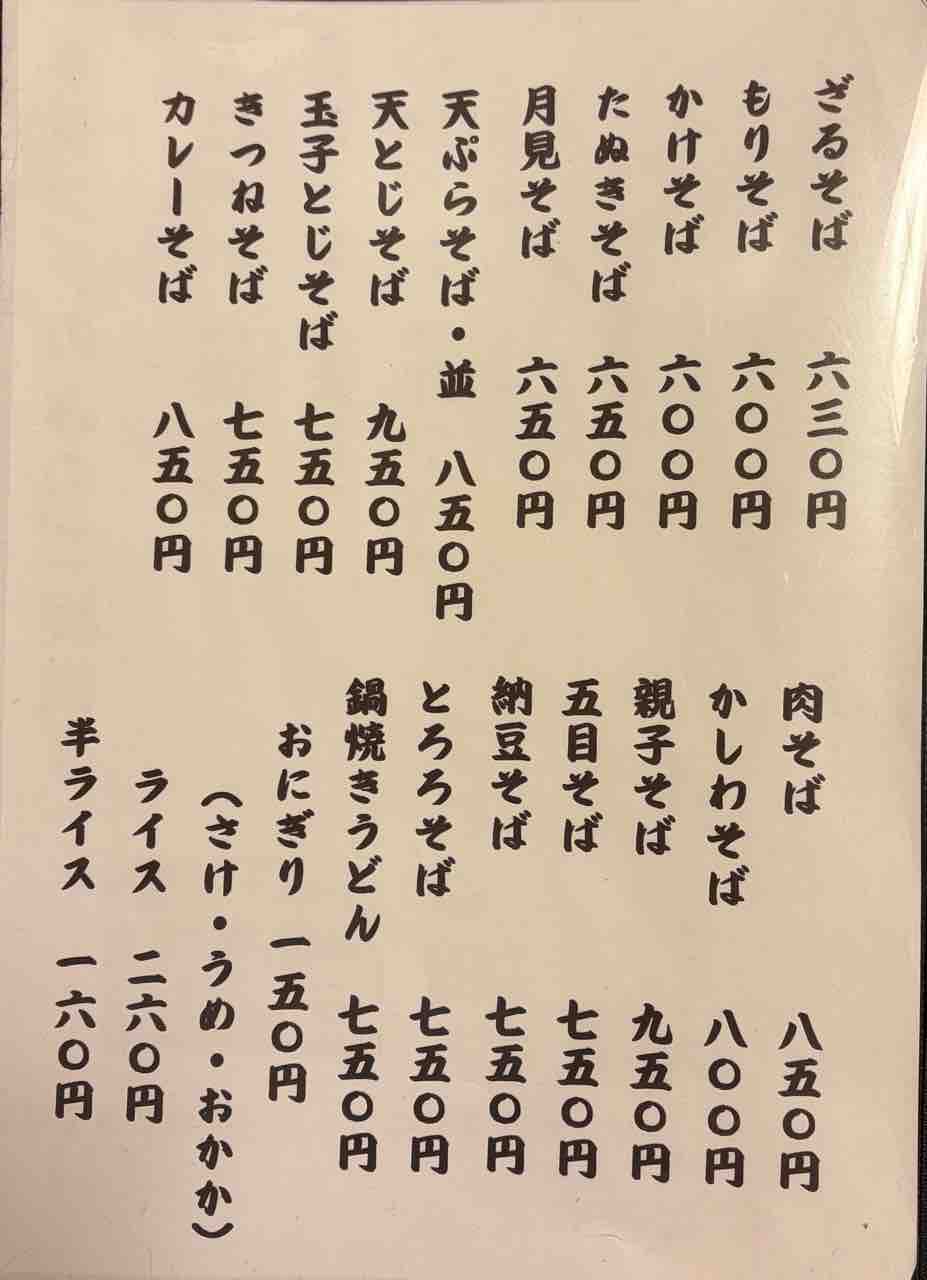 ざるそば 六三〇円
もりそば 六〇〇円
かけそば 六〇〇円
たぬきそば 六五〇円
月見そば 六五〇円
天ぷらそば・並 八五〇円
天とじそば 九五〇円
玉子とじそば 七五〇円
きつねそば 七五〇円
カレーそば 八五〇円
肉そば 八五〇円
かしわそば 八〇〇円
親子そば 九五〇円
五目そば 七五〇円
納豆そば 七五〇円
とろろそば 七五〇円
鍋焼きうどん 七五〇円
おにぎり 一五〇円
（さけ・うめ・おかか）
ライス 二六〇円
半ライス 一六〇円